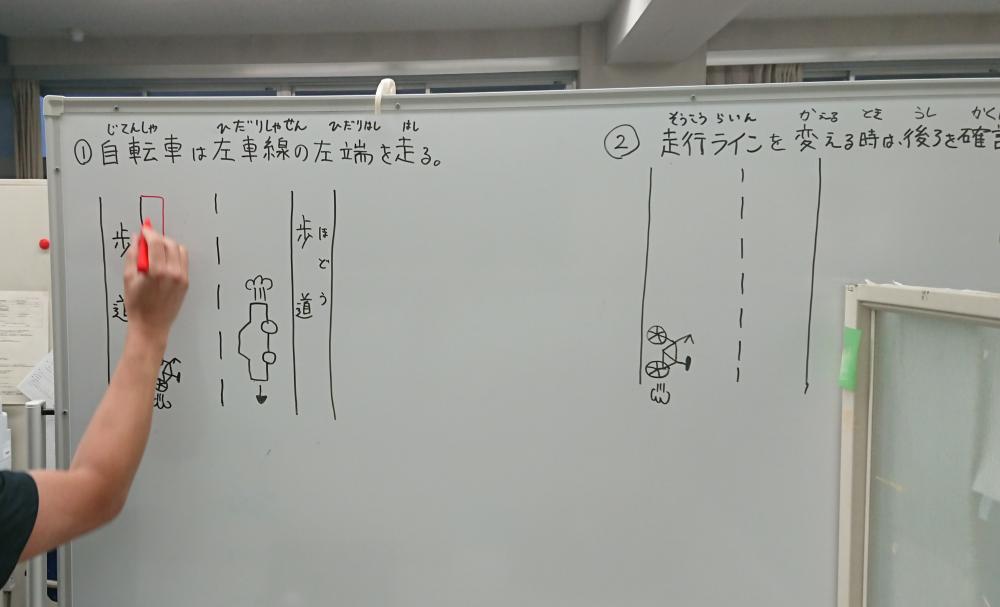 じてんしゃ ひだりしゃせん ひだりはし はし
①自転車は左車線の左端を走る。
歩道
歩道
ほどう
そうこう らいん かえる とき うし かく
②走行ラインを変える時は、後ろを確